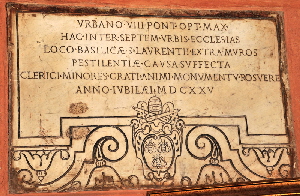 VRBANO·VIII·PONT·OPT·MAX·
HAC·INTER·SEPTEM·VRBIS·ECCLESIAS
LOCO·BASILICÆ·S·LAVRENTII·EXTRA·MVROS
PESTILENTIÆ·CAVSA·SVFFECTA
CLERICI·MINORES·GRATI·ANIMI·MONVMENTV·POSVERE
ANNO·IVBILÆI·MDCXXV·